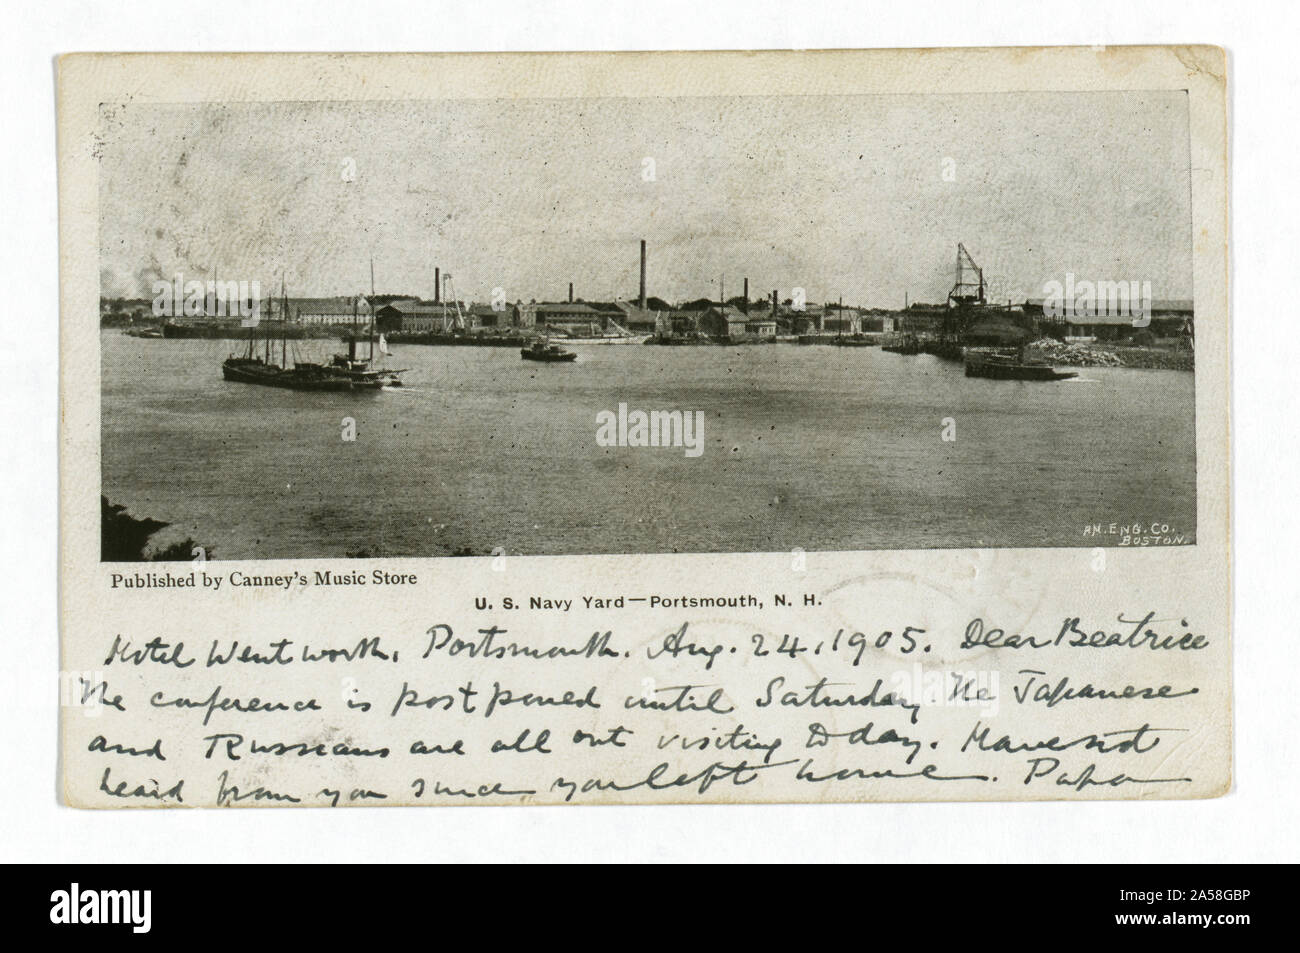 AM. ENG. CO.
BOSTON.
Published by Canney's Music Store
U. S. Navy Yard—Portsmouth, N. H.
Hotel Wentworth, Portsmouth. Aug. 24, 1905. Dear Beatrice
The conference is postponed until Saturday. The Japanese
and Russians are all out visiting today. Have not
heard from you since you left home. Papa
a alamy
alamy
alamy
Image ID: 2A58GBP
www.alamy.com